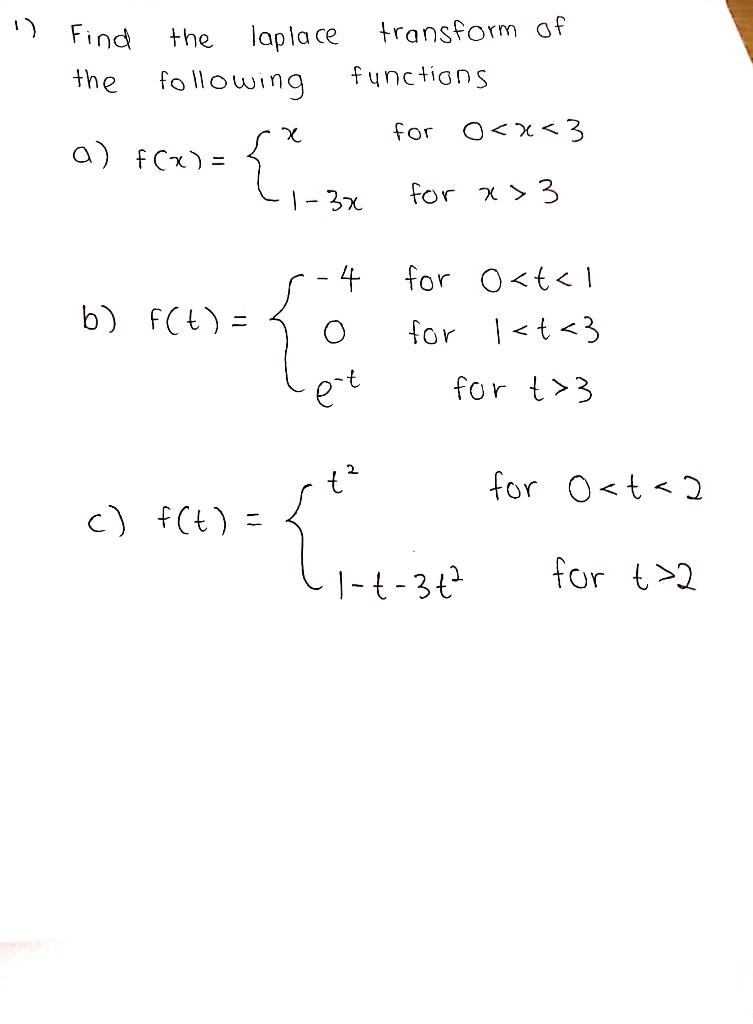 1) Find the laplace transform of
the following functions
a) f(x) = { x for 0<x<3
1-3x for x > 3
b) f(t) = { -4 for 0<t<1
0 for 1<t<3
e^-t for t>3
c) f(t) = { t² for 0<t<2
1-t-3t² for t>2